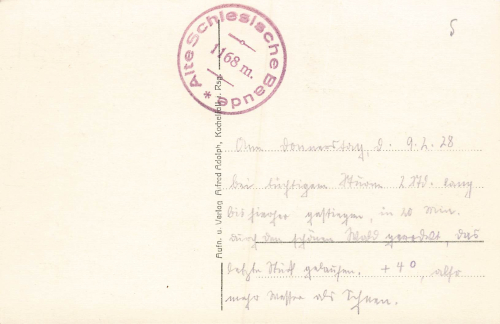 * Alte Schlesische Baude
1168 m.
5
Aufn. u. Verlag Alfred Adolph, Kochelfall i. Rsg.
Am Donnerstag, d. 9.2.28
bei tüchtigem Sturm 2 Std. lang
bis hierher gestiegen, in 20 Min.
durch den schönen Wald gerodelt, das
letzte Stück gelaufen. + 4°, also
mehr Wasser als Schnee.